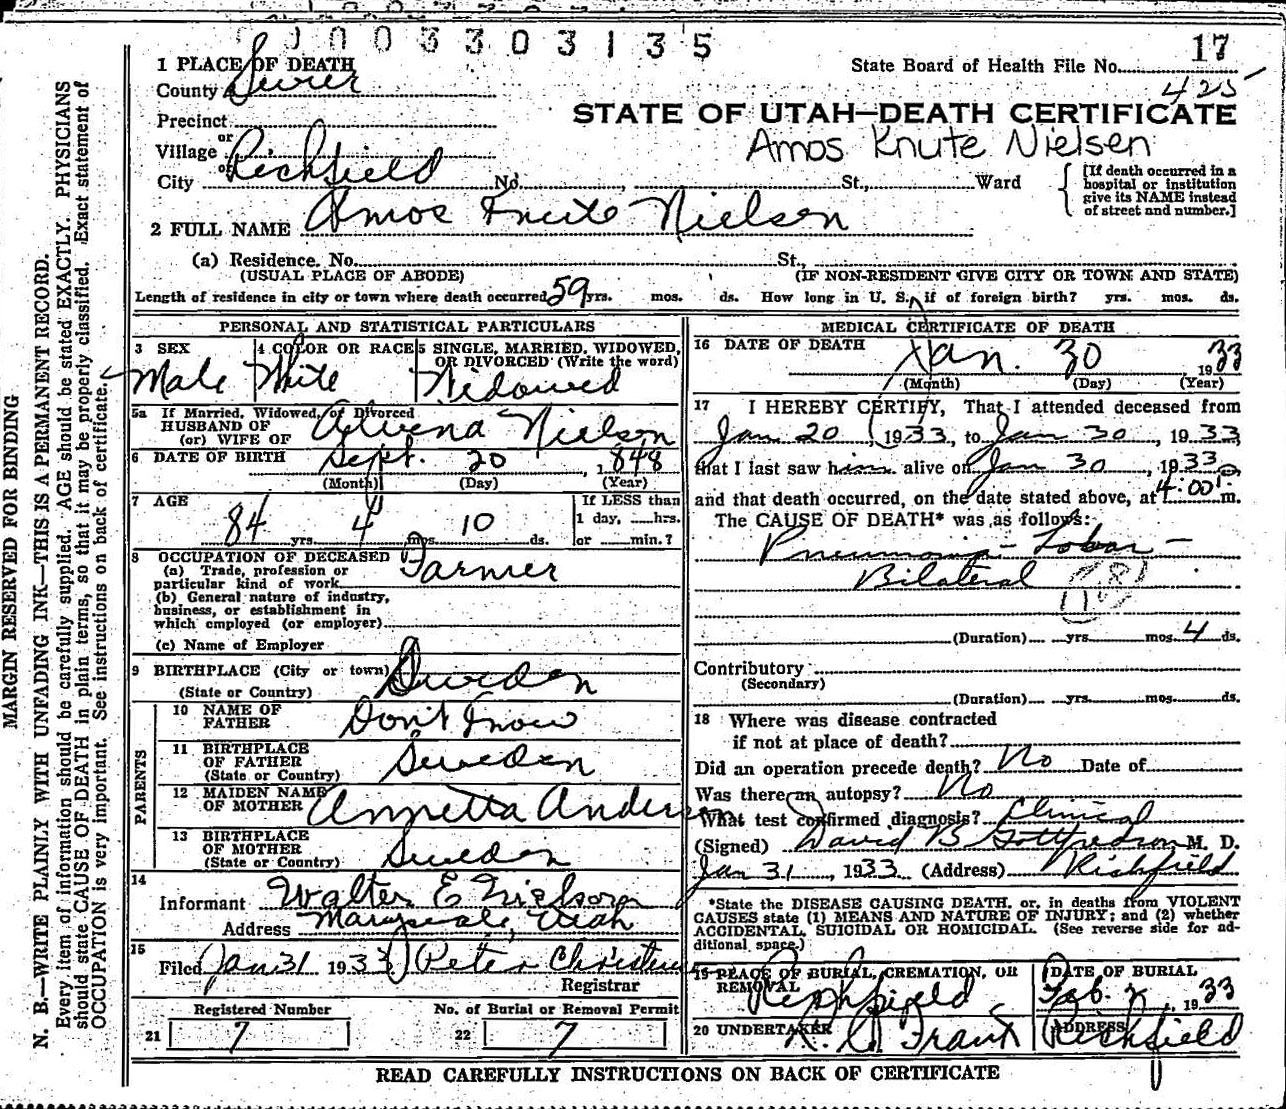 0003303135
17
1 PLACE OF DEATH
State Board of Health File No.
County Sevier
425
STATE OF UTAH—DEATH CERTIFICATE
Precinct
Amos Knute Nielsen
or
Village
or
City Richfield No. , St., Ward
[If death occurred in a hospital or institution give its NAME instead of street and number.]
2 FULL NAME Amos Knute Nielsen
(a) Residence. No. St.,
(USUAL PLACE OF ABODE) (IF NON-RESIDENT GIVE CITY OR TOWN AND STATE)
Length of residence in city or town where death occurred 59 yrs. mos. ds. How long in U. S., if of foreign birth? yrs. mos. ds.
PERSONAL AND STATISTICAL PARTICULARS
3 SEX Male
4 COLOR OR RACE White
5 SINGLE, MARRIED, WIDOWED, OR DIVORCED (Write the word) Widowed
5a If Married, Widowed, or Divorced
HUSBAND OF
(or) WIFE OF Alvena Nielson
6 DATE OF BIRTH Sept. 20, 1848
(Month) (Day) (Year)
7 AGE
84 yrs. 4 mos. 10 ds.
If LESS than
1 day, hrs.
or min.?
8 OCCUPATION OF DECEASED
(a) Trade, profession or
particular kind of work Farmer
(b) General nature of industry,
business, or establishment in
which employed (or employer)
(c) Name of Employer
9 BIRTHPLACE (City or town)
(State or Country) Sweden
PARENTS
10 NAME OF
FATHER Don't Know
11 BIRTHPLACE
OF FATHER
(State or Country) Sweden
12 MAIDEN NAME
OF MOTHER Annetta Anderson
13 BIRTHPLACE
OF MOTHER
(State or Country) Sweden
14
Informant Walter E Nielson
Address Marysvale, Utah
15
Filed Jan 31 1933 Peter Christensen
Registrar
Registered Number
21 7
No. of Burial or Removal Permit
22 7
MEDICAL CERTIFICATE OF DEATH
16 DATE OF DEATH
Jan. 30 1933
(Month) (Day) (Year)
17 I HEREBY CERTIFY, That I attended deceased from
Jan 20, 1933, to Jan 30, 1933,
that I last saw him alive on Jan 30, 1933
and that death occurred, on the date stated above, at 4:00 m.
The CAUSE OF DEATH* was as follows:
Pneumonia - Lobar -
Bilateral
(Duration) yrs. mos. 4 ds.
Contributory
(Secondary)
(Duration) yrs. mos. ds.
18 Where was disease contracted
if not at place of death?
Did an operation precede death? No Date of
Was there an autopsy? No
What test confirmed diagnosis? Clinical
(Signed) David B Gottfredson M. D.
Jan 31, 1933 (Address) Richfield
*State the DISEASE CAUSING DEATH, or, in deaths from VIOLENT
CAUSES state (1) MEANS AND NATURE OF INJURY; and (2) whether
ACCIDENTAL, SUICIDAL OR HOMICIDAL. (See reverse side for ad-
ditional space.)
19 PLACE OF BURIAL, CREMATION, OR
REMOVAL Richfield
DATE OF BURIAL
Feb. 2, 1933
20 UNDERTAKER
Frank
ADDRESS
Richfield
READ CAREFULLY INSTRUCTIONS ON BACK OF CERTIFICATE
MARGIN RESERVED FOR BINDING
N. B.—WRITE PLAINLY WITH UNFADING INK—THIS IS A PERMANENT RECORD.
Every item of information should be carefully supplied. AGE should be stated EXACTLY. PHYSICIANS
should state CAUSE OF DEATH in plain terms, so that it may be properly classified. Exact statement of
OCCUPATION is very important. See instructions on back of certificate.